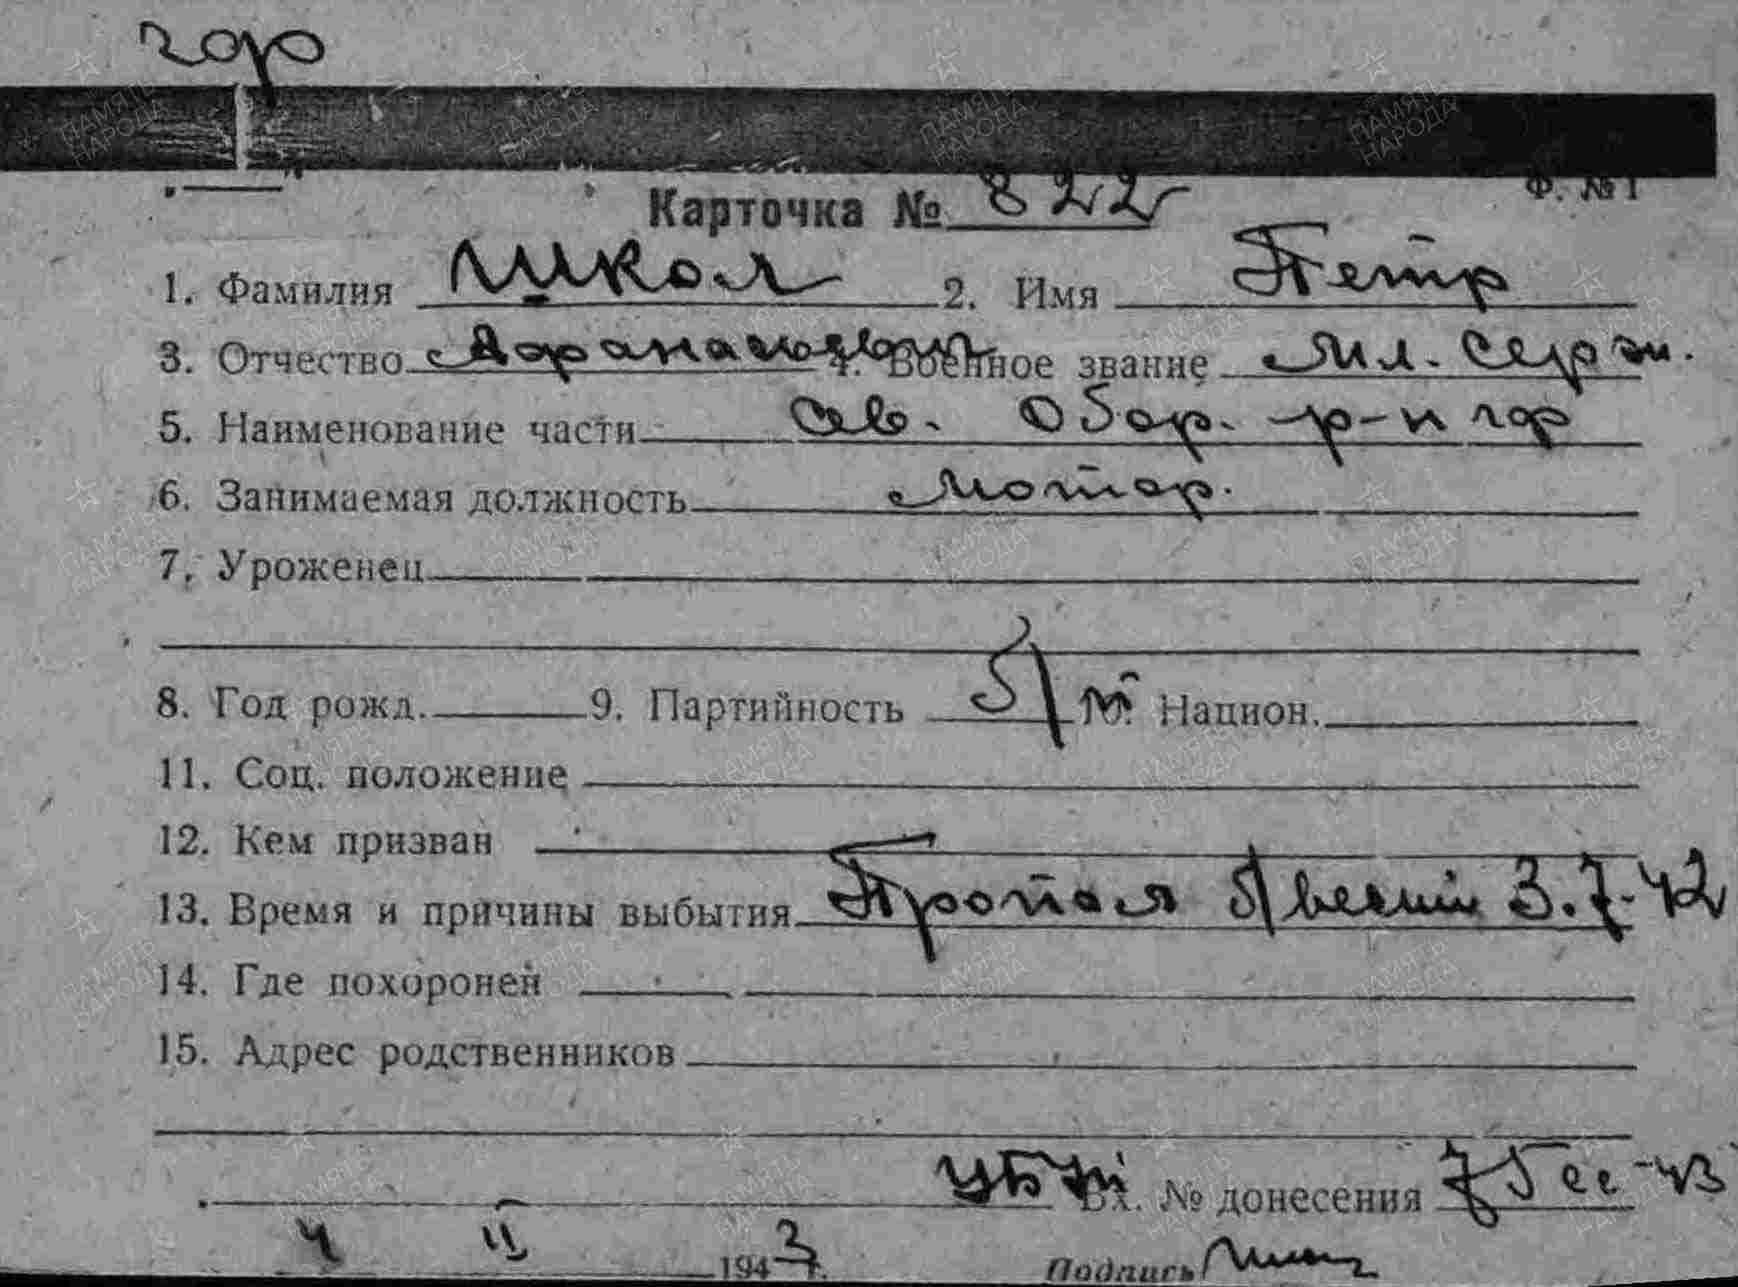 чор
Ф. №1
Карточка № 822
1. Фамилия Школ 2. Имя Петр
3. Отчество Афанасьевич 4. Военное звание Мл. серж.
5. Наименование части Сев. Обор. р-н чф
6. Занимаемая должность Мотор.
7. Уроженец
8. Год рожд. 9. Партийность б/п 10. Национ.
11. Соц. положение
12. Кем призван
13. Время и причины выбытия Пропал б/вести 3.7.42
14. Где похоронен
15. Адрес родственников
Вх. № донесения 75сс-43
4 II 1943 г. Подпись
ПАМЯТЬ НАРОДА